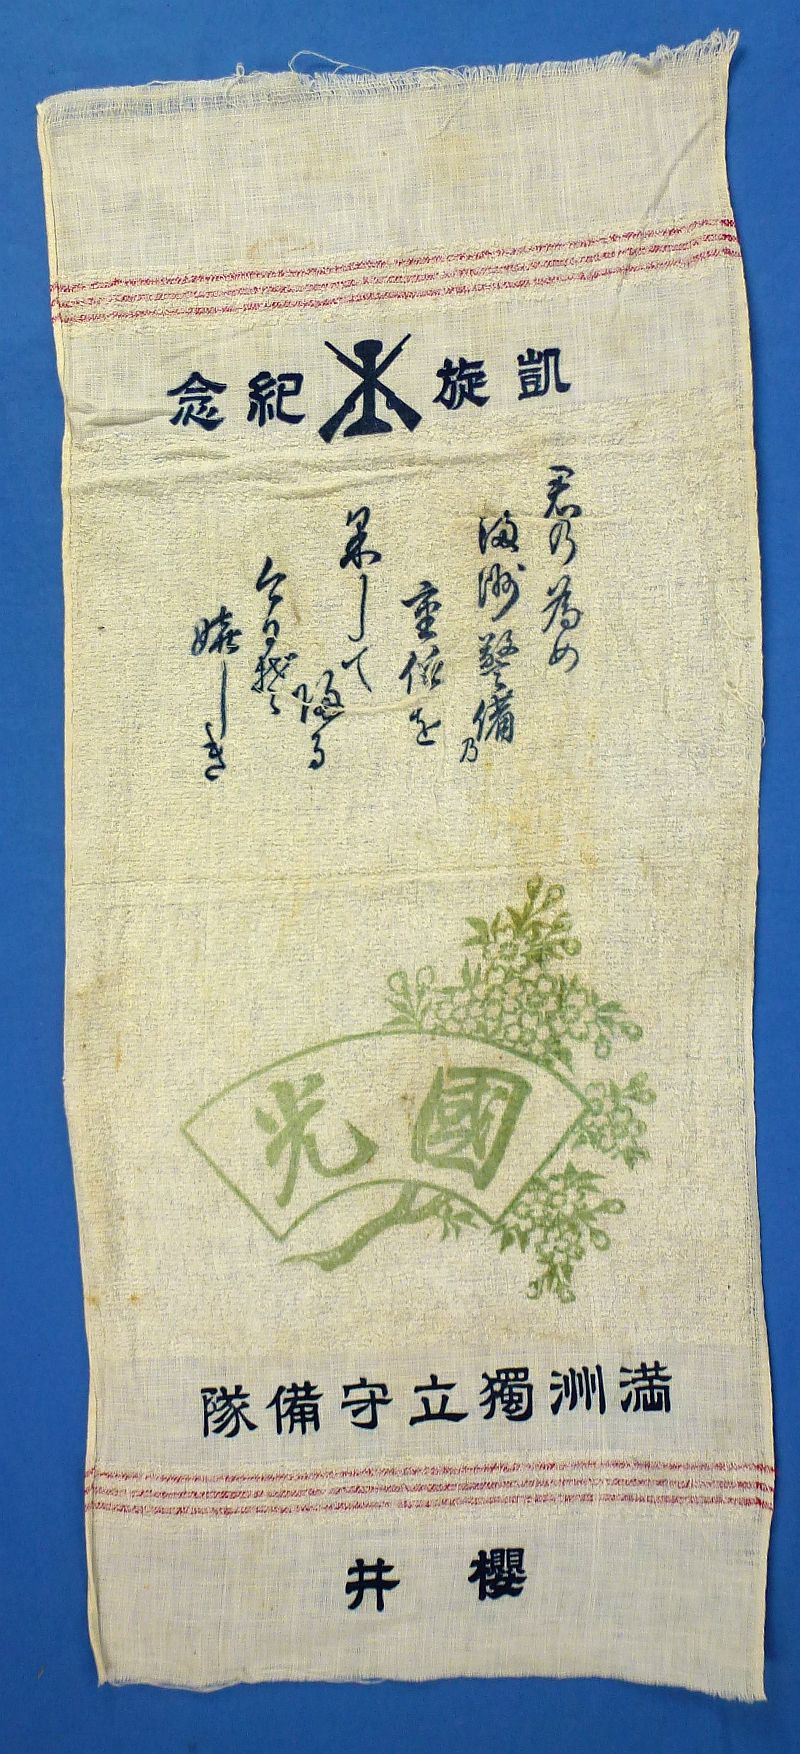 凱旋紀念
君乃為め
満洲警備乃
重任を
果して
帰る
今日ぞ
嬉しき
國光
満洲獨立守備隊
櫻井